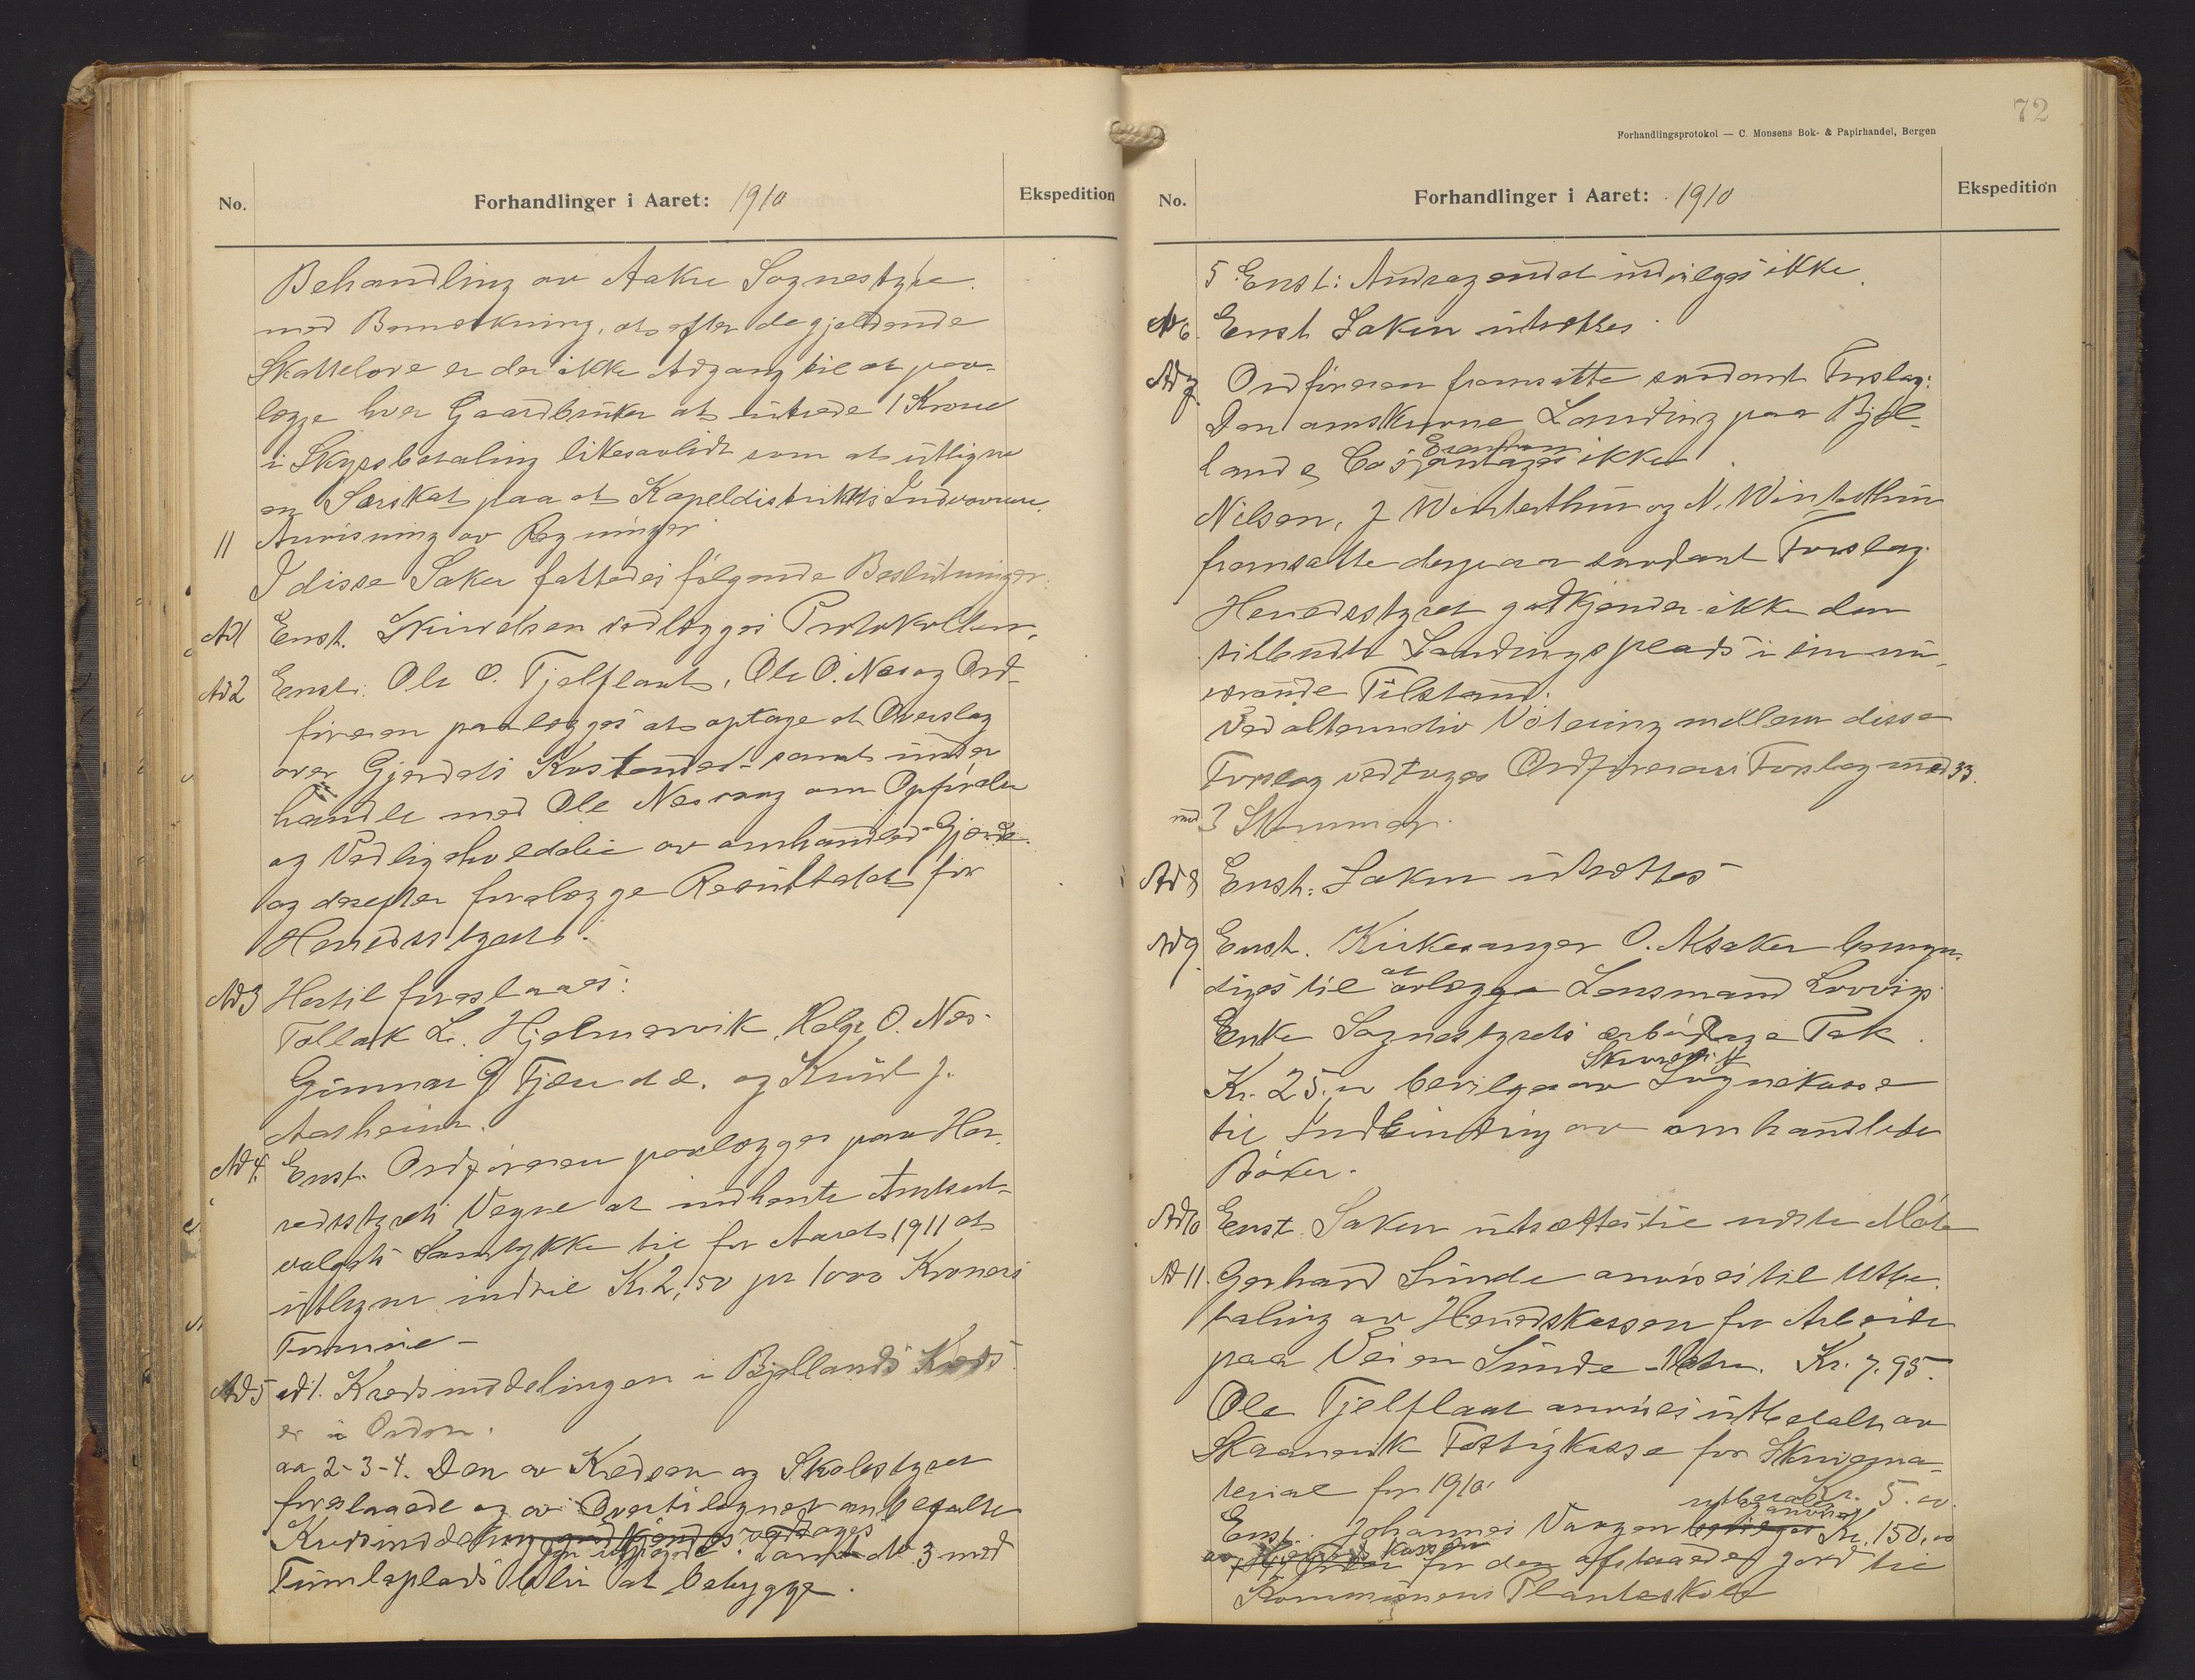 No.
Forhandlinger i Aaret: 1910
Ekspedition
Behandling av Aakre Sognestyre
med Bemerkning, at efter de gjeldende
Skattelove er der ikke Adgang til at paa-
lægge hver Gaardbruker at utrede 1 Krone
i Skydsbetaling likesaalidt som at utligne
en Særskat paa et Kapeldistrikts Indvaanere.
11 Anvisning av Regninger
I disse Saker fattedes følgende Beslutninger
Ad 1 Enst. Skrivelsen vedlægges Protokollen.
Ad 2 Enst: Ole O. Tjelflaat, Ole O. Nes og Ord-
føreren paalægges at optage et Overslag
over Gjerdets Kostende samt under
handle med Ole Nes om Opførelse
og Vedligeholdelse av omhandlede Gjerde
og derefter forelægge Resultatet for
Herredsstyret.
Ad 3 Hertil foreslaaes:
Tollak L. Hjelmervik, Helge O. Nes
Gunnar G Fjæra d.e. og Knut J.
Aarheim.
Ad 4. Enst. Ordføreren paalægges paa Her-
redsstyrets Vegne at indhente Amtsut-
valgets Samtykke til for Aaret 1911 at
utligne indtil Kr. 2,50 pr 1000 Kroners
Formue -
Ad 5 ad 1. Kredsinddelingen i Bjellands Kreds
er i Orden.
aa 2-3-4. Den av Kredsen og Skolestyret
foreslagede og av Overtilsynet anbefalte
Kredsinddeling godkjendes vedtages
Tomt No 3 med
Tumleplads blir at bebygge.
72
Forhandlingsprotokol — C. Monsens Bok- & Papirhandel, Bergen
No.
Forhandlinger i Aaret: 1910
Ekspedition
5 Enst: Andragendet indvilges ikke.
Ad 6. Enst Saken utsættes
Ad 7 Ordføreren fremsatte saadant Forslag:
Den omskrevne Landing paa Bjel-
land & Co's Eiendom antages ikke
Nilsen, J Winterthun og N. Winterthun
fremsatte derpaa saadant Forslag
Herredsstyret godkjender ikke den
tilbudte Landingsplads i sin nu-
værende Tilstand.
Ved alternativ Votering mellem disse
Forslag vedtoges Ordførerens Forslag med 33
mod 3 Stemmer.
Ad 8 Enst: Saken utsættes
Ad 9 Enst. Kirkesanger O. Aksaker bemyn-
diges til at avlægge Lensmand Lovvigs
Enke Sognestyrets ærbødige Tak.
Kr. 25.00 bevilges av Skaanevik Sognekasse
til Indbinding av omhandlede
Bøker.
Ad 10 Enst. Saken utsættes til neste Møte
Ad 11. Gerhard Sunde anvises til Utbe-
taling av Herredskassen for Arbeide
paa Veien Sunde - Kr. 7.95.
Ole Tjelflaat anvises utbetalt av
Skaanevik Fattigkasse for Skrivema-
teriale for 1910. Kr. 5.00
Enst. Johannes Vaagen bevilges utbetalt anvises Kr. 150,00
av Herredskassen for den afstaaede jord til
Kommunens Planteskole